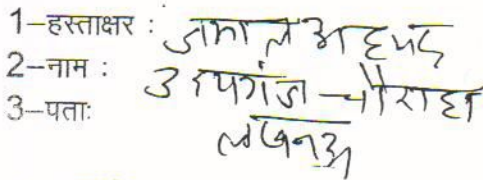 1–हस्ताक्षर : जमाल अहमद
2–नाम : उदयगंज – चौराहा
3–पताः लखनऊ